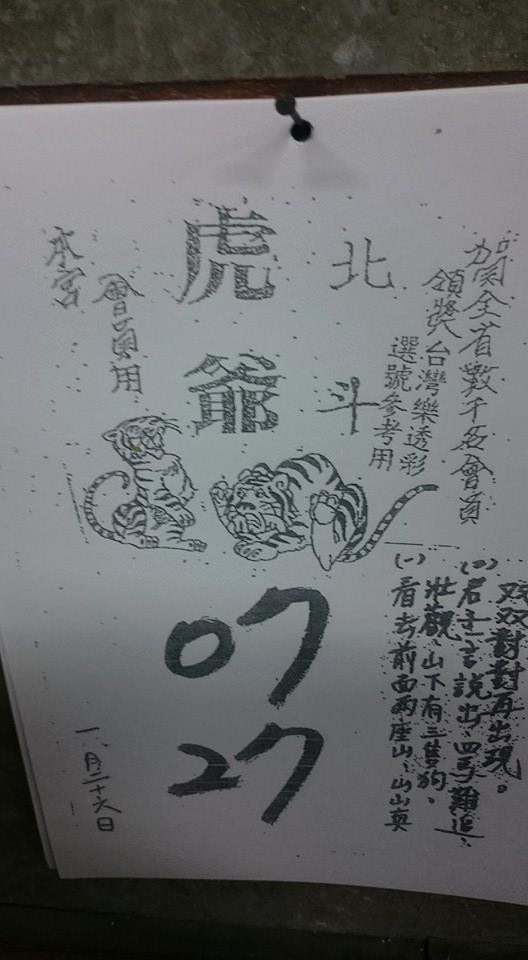 賀全省數千名會員
領獎台灣樂透彩
選號參考用
北斗
虎爺
會員用
本宮
(一)看去前面兩座山、山山真
壯觀、山下有三隻狗、
(二)君子一言說出、四馬難追、
双双對對再出現。
07
27
一、月二十六日